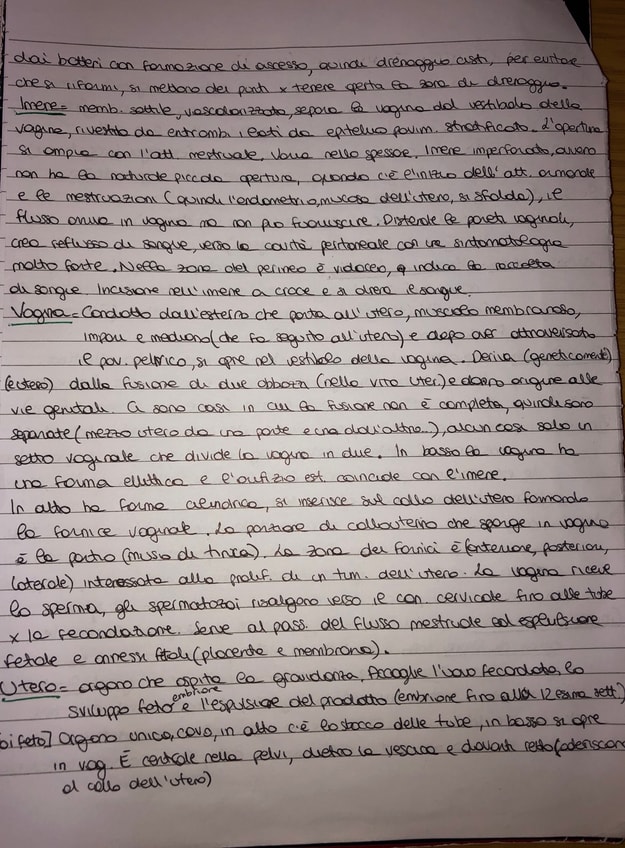 dai batteri con formazione di ascesso, quindi drenaggio cisti, per evitare
che si riformi, si mettono dei punti x tenere aperta la zona di drenaggio.
Imene= memb. sottile, vascolarizzata, separa la vagina dal vestibolo della
vagina, rivestita da entrambi i lati da epitelio pavim. stratificato. L'apertura
si amplia con l'att. mestruale. Varia nello spessore. Imene imperforato, ovvero
non ha la naturale piccola apertura, quando c'è l'inizio dell'att. ormonale
e le mestruazioni (quindi l'endometrio, mucosa dell'utero, si sfalda), il
flusso arriva in vagina ma non può fuoriuscire. Distende le pareti vaginali,
crea reflusso di sangue, verso la cavità peritoneale con una sintomatologia
molto forte. Nella zona del perineo è violaceo, indica la raccolta
di sangue. Incisione nell'imene a croce e si drena il sangue.
Vagina= Condotto dall'esterno che porta all'utero, muscolo membranoso,
impari e mediano (che fa seguito all'utero) e dopo aver attraversato
il pav. pelvico, si apre nel vestibolo della vagina. Deriva (geneticamente)
(e utero) dalla fusione di due abbozzi (nella vita uter.) e danno origine alle
vie genitali. Ci sono casi in cui la fusione non è completa, quindi sono
separate (mezzo utero da una parte e una dall'altra..), alcuni casi solo un
setto vaginale che divide la vagina in due. In basso la vagina ha
una forma ellittica e l'orifizio est. coincide con l'imene.
In alto ha forma cilindrica, si inserisce sul collo dell'utero formando
la fornice vaginale. La porzione di collo uterino che sporge in vagina
è la portio (muso di tinca). La zona dei fornici è (anteriore, posteriori,
laterale) interessata alla prolif. di un tum. dell'utero. La vagina riceve
lo sperma, gli spermatozoi risalgono verso il can. cervicale fino alle tube
x la fecondazione. Serve al pass. del flusso mestruale ed espulsione
fetale e annessi fetali (placenta e membrana).
Utero= organo che ospita la gravidanza, Accoglie l'uovo fecondato, lo
sviluppo feto embrione e l'espulsione del prodotto (embrione fino alla 12esima sett.)
poi feto] Organo unico, cavo, in alto c'è lo sbocco delle tube, in basso si apre
in vag. È centrale nella pelvi, dietro la vescica e davanti retto (aderiscono
al collo dell'utero)